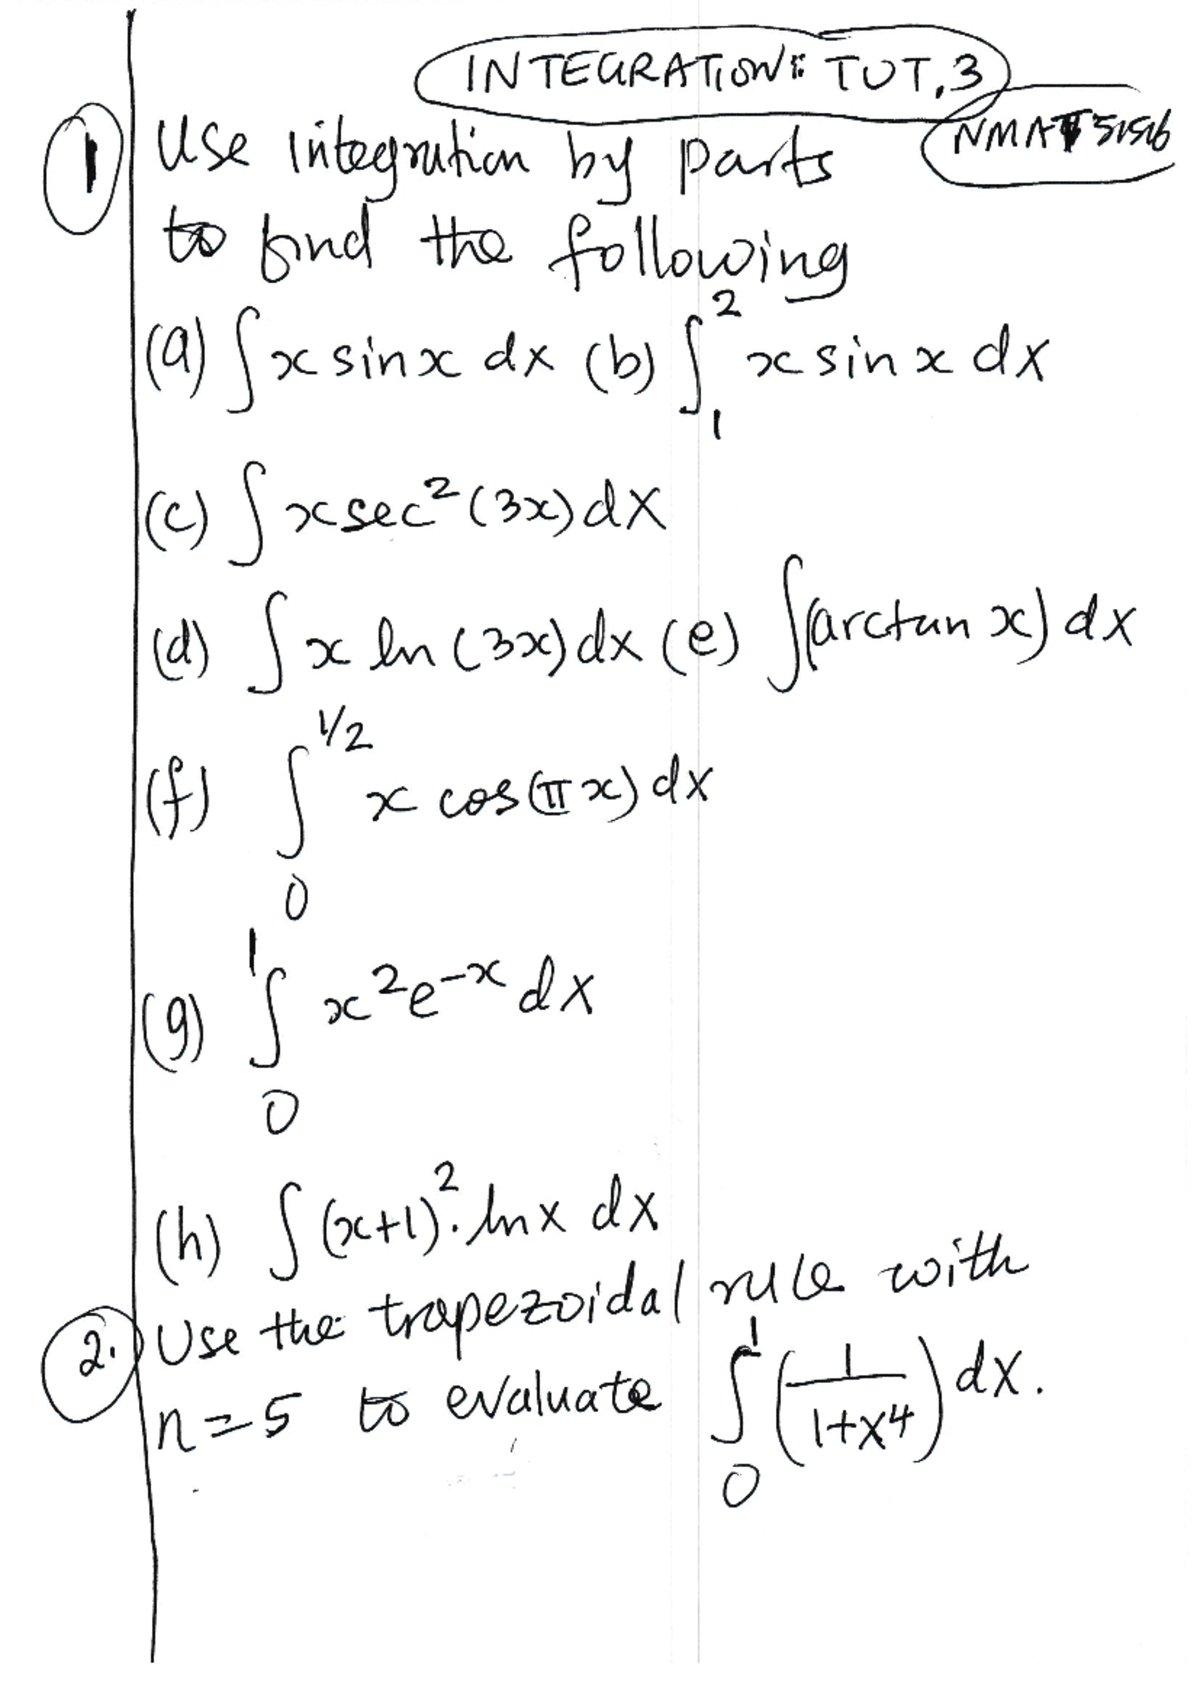 INTEGRATION: TUT.3
NMAT51516
1 Use integration by parts
to find the following
(a) ∫ x sin x dx (b) ∫₁² x sin x dx
(c) ∫ x sec² (3x) dx
(d) ∫ x ln (3x) dx (e) ∫(arctan x) dx
(f) ∫₀^(1/2) x cos (π x) dx
(g) ∫₀¹ x² e^(-x) dx
(h) ∫ (x+1)². ln x dx
2. Use the trapezoidal rule with
n = 5 to evaluate ∫₀¹ (1/(1+x⁴)) dx.